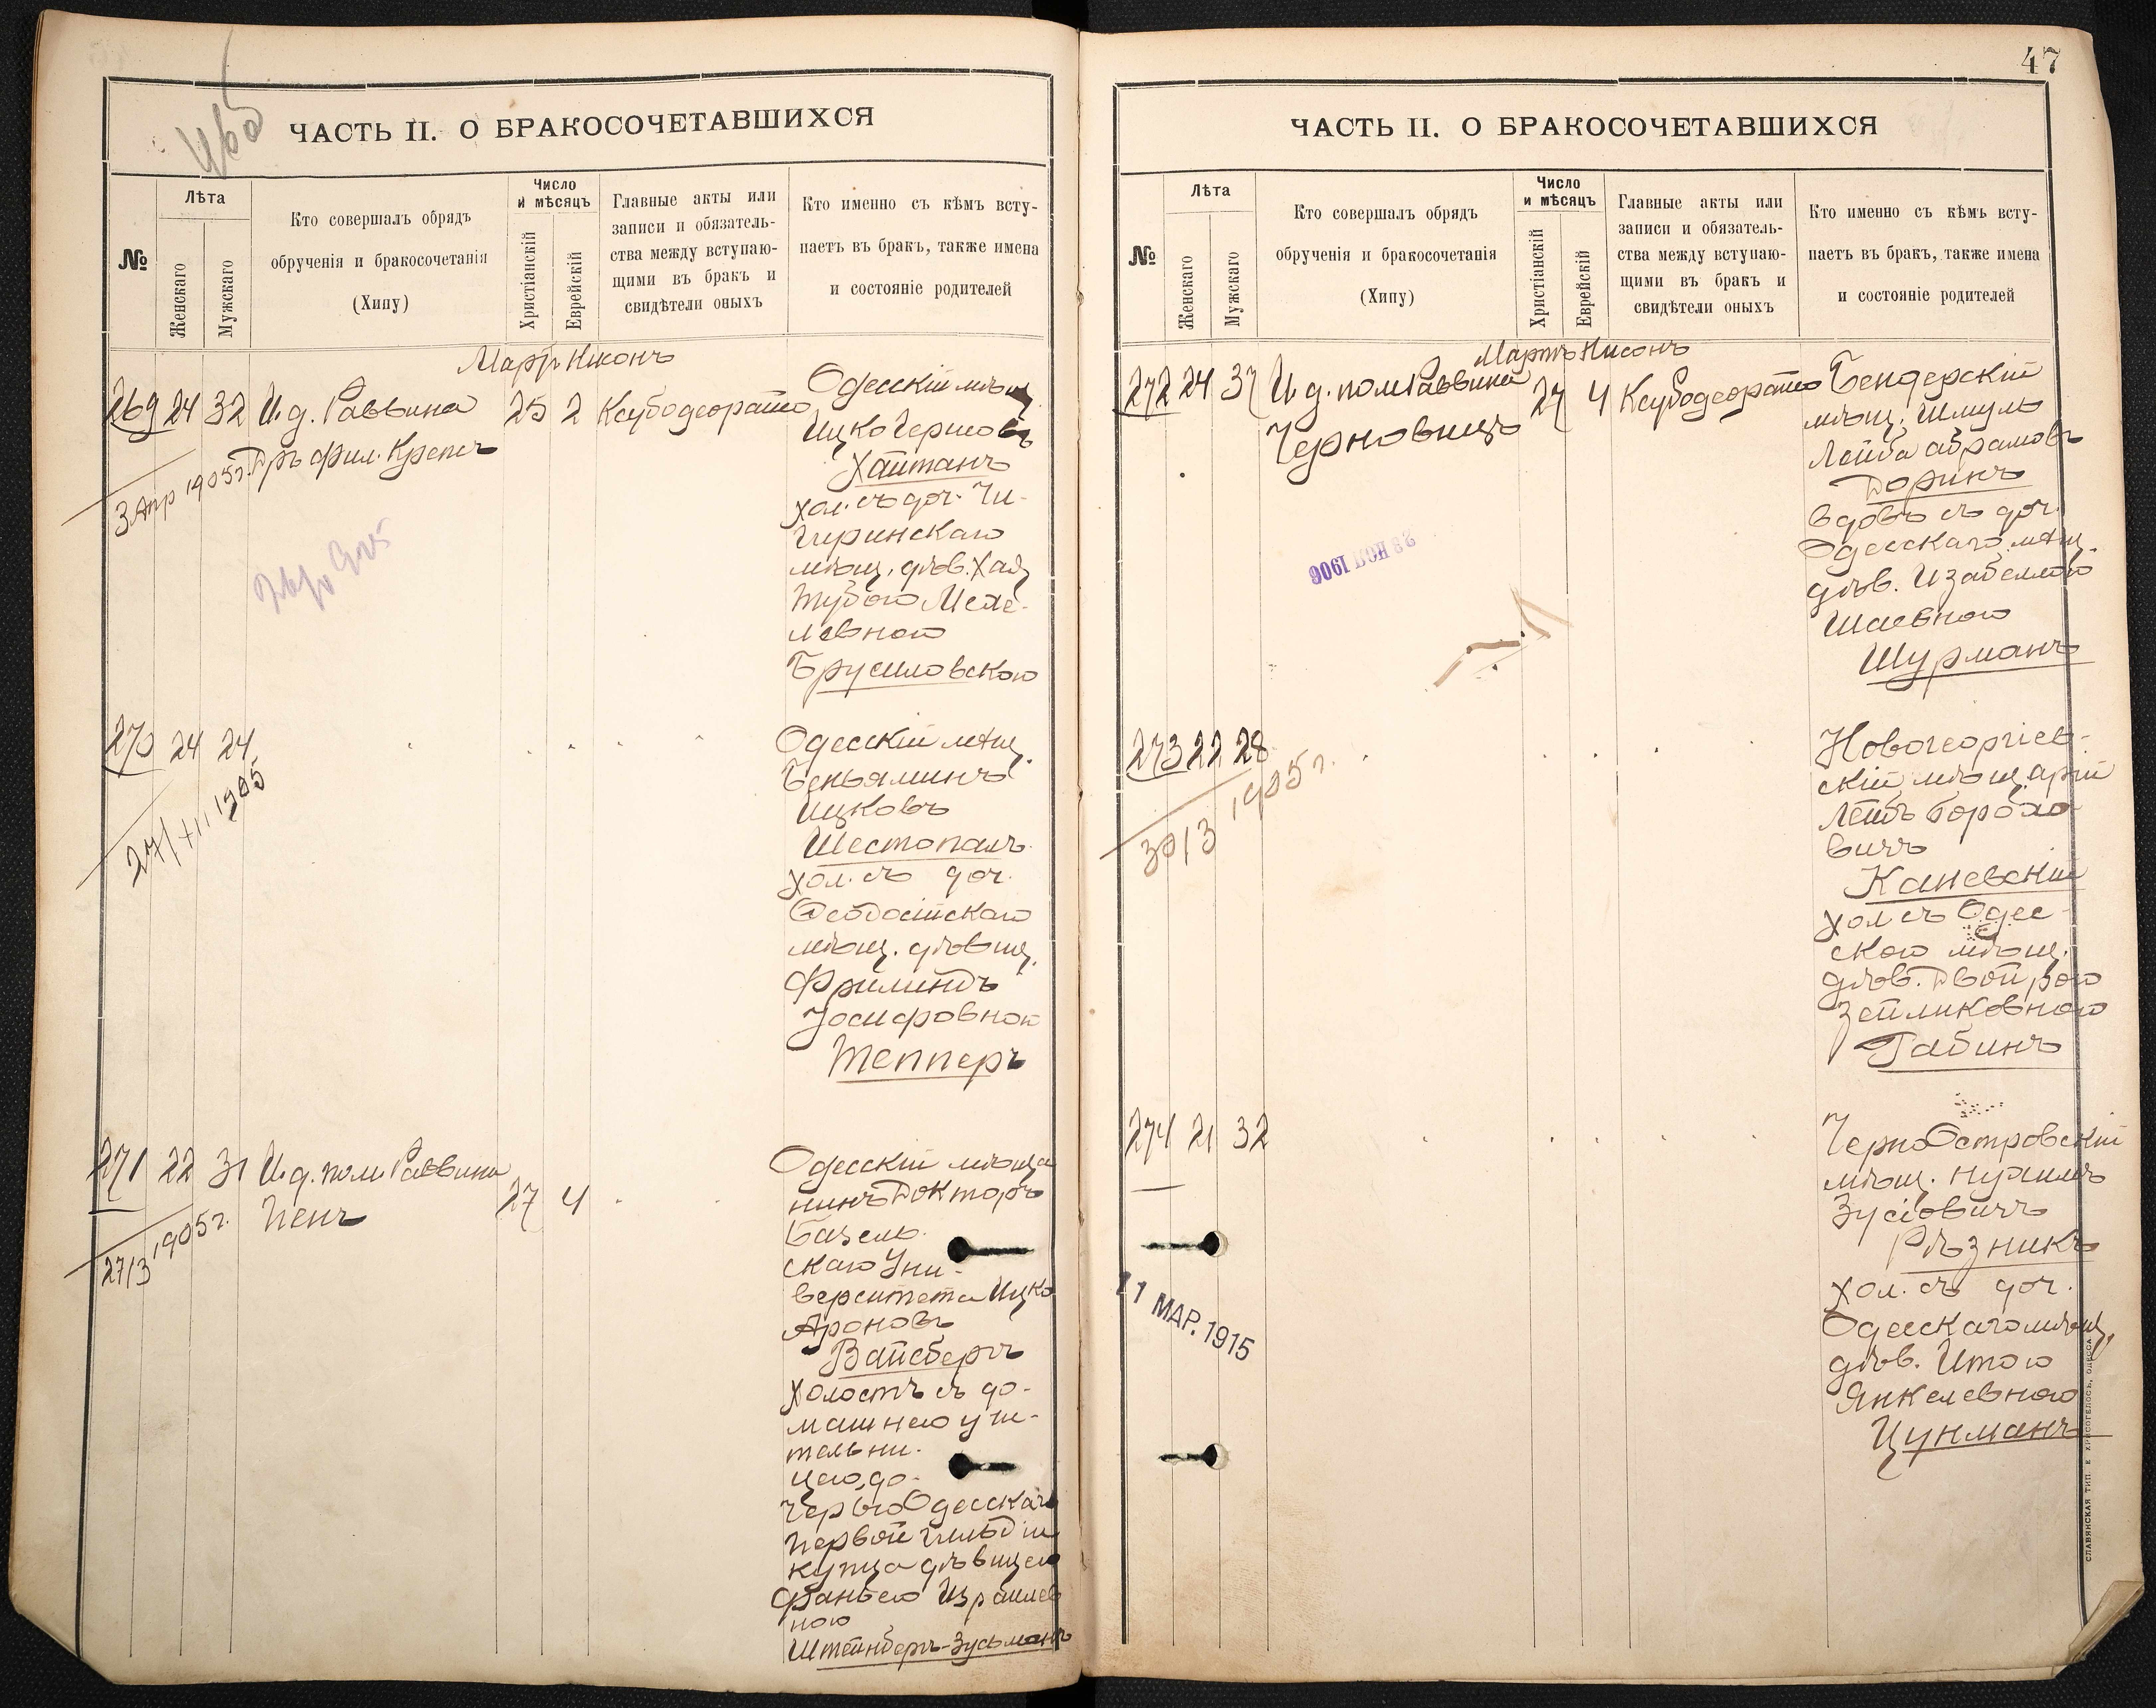 ЧАСТЬ II. О БРАКОСОЧЕТАВШИХСЯ
№
Лѣта
Женскаго
Мужскаго
Кто совершалъ обрядъ
обрученія и бракосочетанія
(Хипу)
Число
и мѣсяцъ
Христіанскій
Еврейскій
Главные акты или
записи и обязатель-
ства между вступаю-
щими въ бракъ и
свидѣтели оныхъ
Кто именно съ кѣмъ всту-
паетъ въ бракъ, также имена
и состояніе родителей
269 24 32 И.д. Раввина
Дръ фил. Крепсъ
25 2
3 Апр 1905г.
Одесскій мѣщ
Ицко Гершовъ
Хайтанъ
хол. съ доч. Чи-
гиринскаго
мѣщ. дѣв. Хая
Тубою Менде-
левною
Брусиловскою
270 24 24
27/XII 1905
Одесскій мѣщ.
Беньяминъ
Ицковъ
Шестопалъ
хол. съ доч.
Ѳеодосійскаго
мѣщ. дѣвиц.
Фрилиндъ
Іосифовною
Тепперъ
271 22 31 И.д. пом. Раввина
Пенъ
27 4
27/3 1905г.
Одесскій мѣща
нинъ Докторъ
Базель-
скаго Уни-
верситета Ицко
Ароновъ
Вайсбергъ
Холостъ съ до-
машнею учи-
тельни-
цею, до-
черью Одесскаго
первой гильдіи
купца дѣвицею
Фанею Израилев
ною
Штейнбергъ-Зусьманъ
47
ЧАСТЬ II. О БРАКОСОЧЕТАВШИХСЯ
№
Лѣта
Женскаго
Мужскаго
Кто совершалъ обрядъ
обрученія и бракосочетанія
(Хипу)
Число
и мѣсяцъ
Христіанскій
Еврейскій
Главные акты или
записи и обязатель-
ства между вступаю-
щими въ бракъ и
свидѣтели оныхъ
Кто именно съ кѣмъ всту-
паетъ въ бракъ, также имена
и состояніе родителей
Мартъ Нисонъ
272 24 37 И.д. пом Раввина
Черновицъ
27 4
Бендерскій
мѣщ. Шмуль
Лейба Абрамовъ
Доринъ
вдовъ съ доч.
Одесскаго мѣщ.
дѣв. Изабеллою
Шаевною
Шурманъ
273 22 28
30/3 1905г.
Новогеоргіев-
скій мѣщ. Арій
Лейбъ Борохо
вичъ
Каневскій
хол съ Одес-
скою мѣщ.
дѣв. Двойрою
Зейликовною
Габинъ
274 21 32
11 МАР. 1915
ЧерноОстровскій
мѣщ. Нухимъ
Зусіовичъ
Рѣзникъ
хол. съ доч.
Одесскаго мѣщ.
дѣв. Итою
Янкелевною
Цукманъ
СЛАВЯНСКАЯ ТИП. Е. ХРИСОГЕЛОСЪ, ОДЕССА